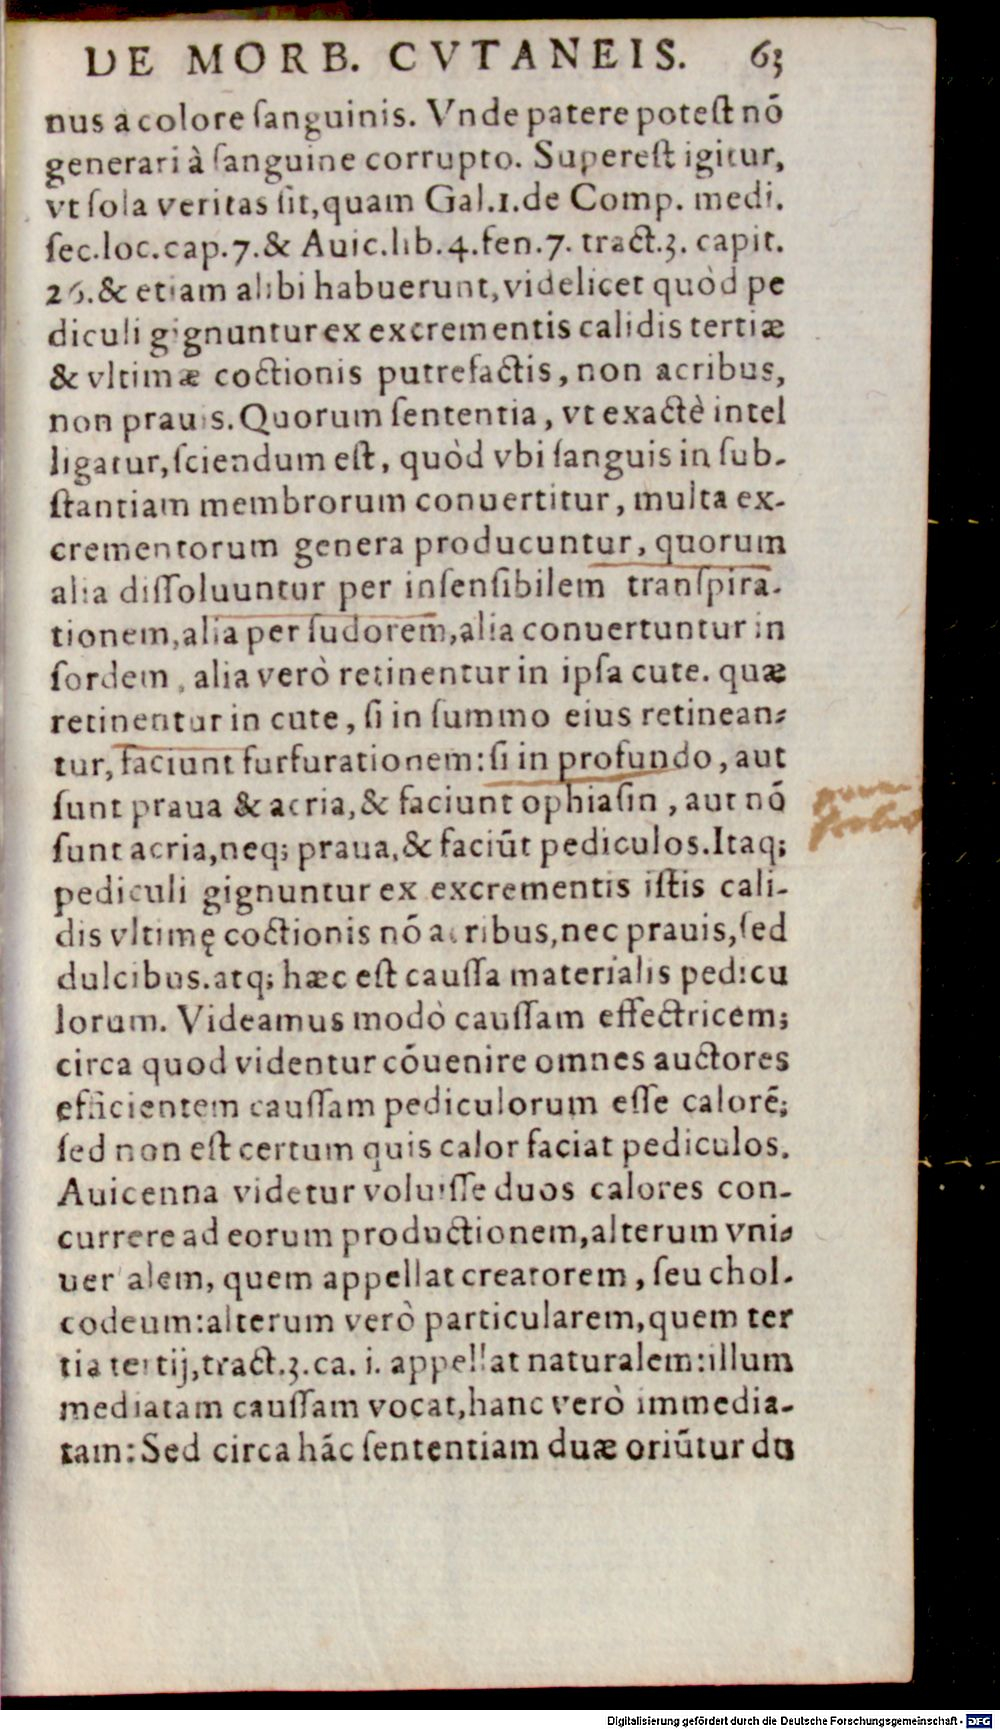 DE MORB. CVTANEIS. 63
nus a colore ſanguinis. Vnde patere poteſt nõ
generari à ſanguine corrupto. Supereſt igitur,
vt ſola veritas ſit, quam Gal.1.de Comp. medi.
ſec.loc.cap.7.& Auic.lib.4.fen.7. tract.3. capit.
26.& etiam alibi habuerunt, videlicet quòd pe
diculi gignuntur ex excrementis calidis tertiæ
& vltimæ coctionis putrefactis, non acribus,
non prauis. Quorum ſententia, vt exactè intel
ligatur, ſciendum eſt, quòd vbi ſanguis in ſub-
ſtantiam membrorum conuertitur, multa ex-
crementorum genera producuntur, quorum
alia diſſoluuntur per inſenſibilem tranſpira-
tionem, alia per ſudorem, alia conuertuntur in
ſordem, alia verò retinentur in ipſa cute. quæ
retinentur in cute, ſi in ſummo eius retinean-
tur, faciunt furfurationem: ſi in profundo, aut
ſunt praua & acria, & faciunt ophiaſin, aut nõ
ſunt acria, neq; praua, & faciũt pediculos. Itaq;
pediculi gignuntur ex excrementis iſtis cali-
dis vltimę coctionis nõ acribus, nec prauis, ſed
dulcibus. atq; hæc eſt cauſſa materialis pedicu
lorum. Videamus modò cauſſam effectricem;
circa quod videntur cõuenire omnes auctores
efficientem cauſſam pediculorum eſſe calorẽ;
ſed non eſt certum quis calor faciat pediculos.
Auicenna videtur voluiſſe duos calores con-
currere ad eorum productionem, alterum vni-
uerſalem, quem appellat creatorem, ſeu chol-
codeum: alterum verò particularem, quem ter
tia tertij, tract.3.ca. i. appellat naturalem: illum
mediatam cauſſam vocat, hanc verò immedia-
tam: Sed circa hãc ſententiam duæ oriũtur du
Digitalisierung gefördert durch die Deutsche Forschungsgemeinschaft - DFG